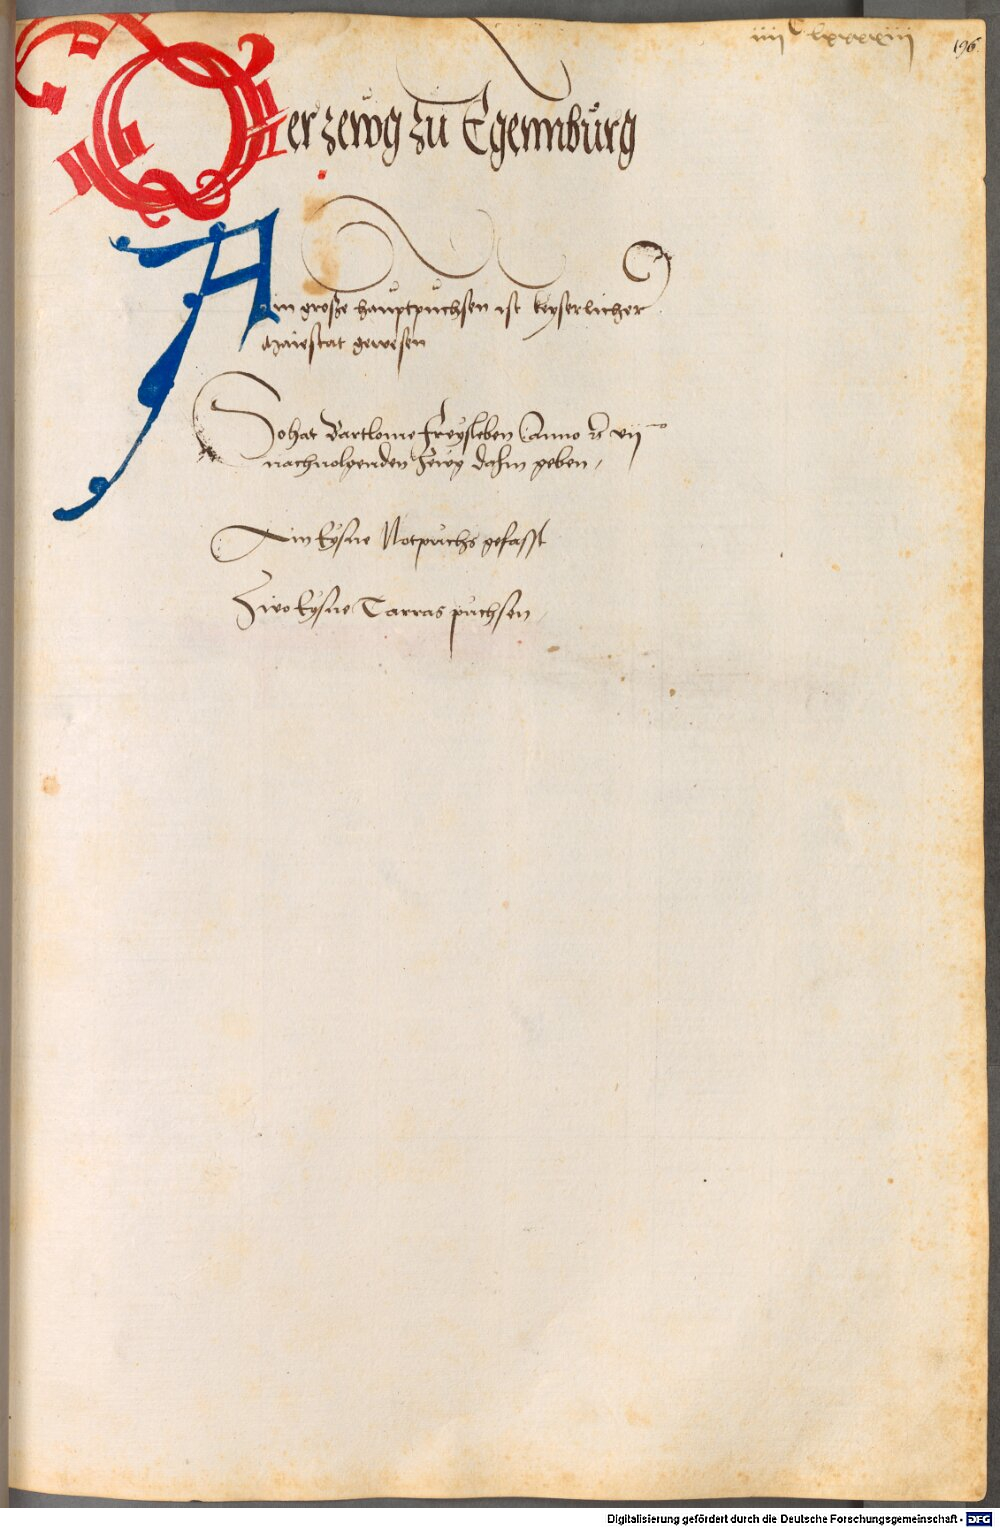 iiii c lxxxxiii
196.
Der zewg zu Egennburg
Ain große hauptpuchsen ist keyserlicher
Maiestat gewesen
So hat Bartlome Freysleben Anno  vii
nachuolgenden Zewg dahin geben /
Ain Eysne Notpuchs gefasst
Zwo Eysne Tarras puchsen
Digitalisierung gefördert durch die Deutsche Forschungsgemeinschaft - DFG